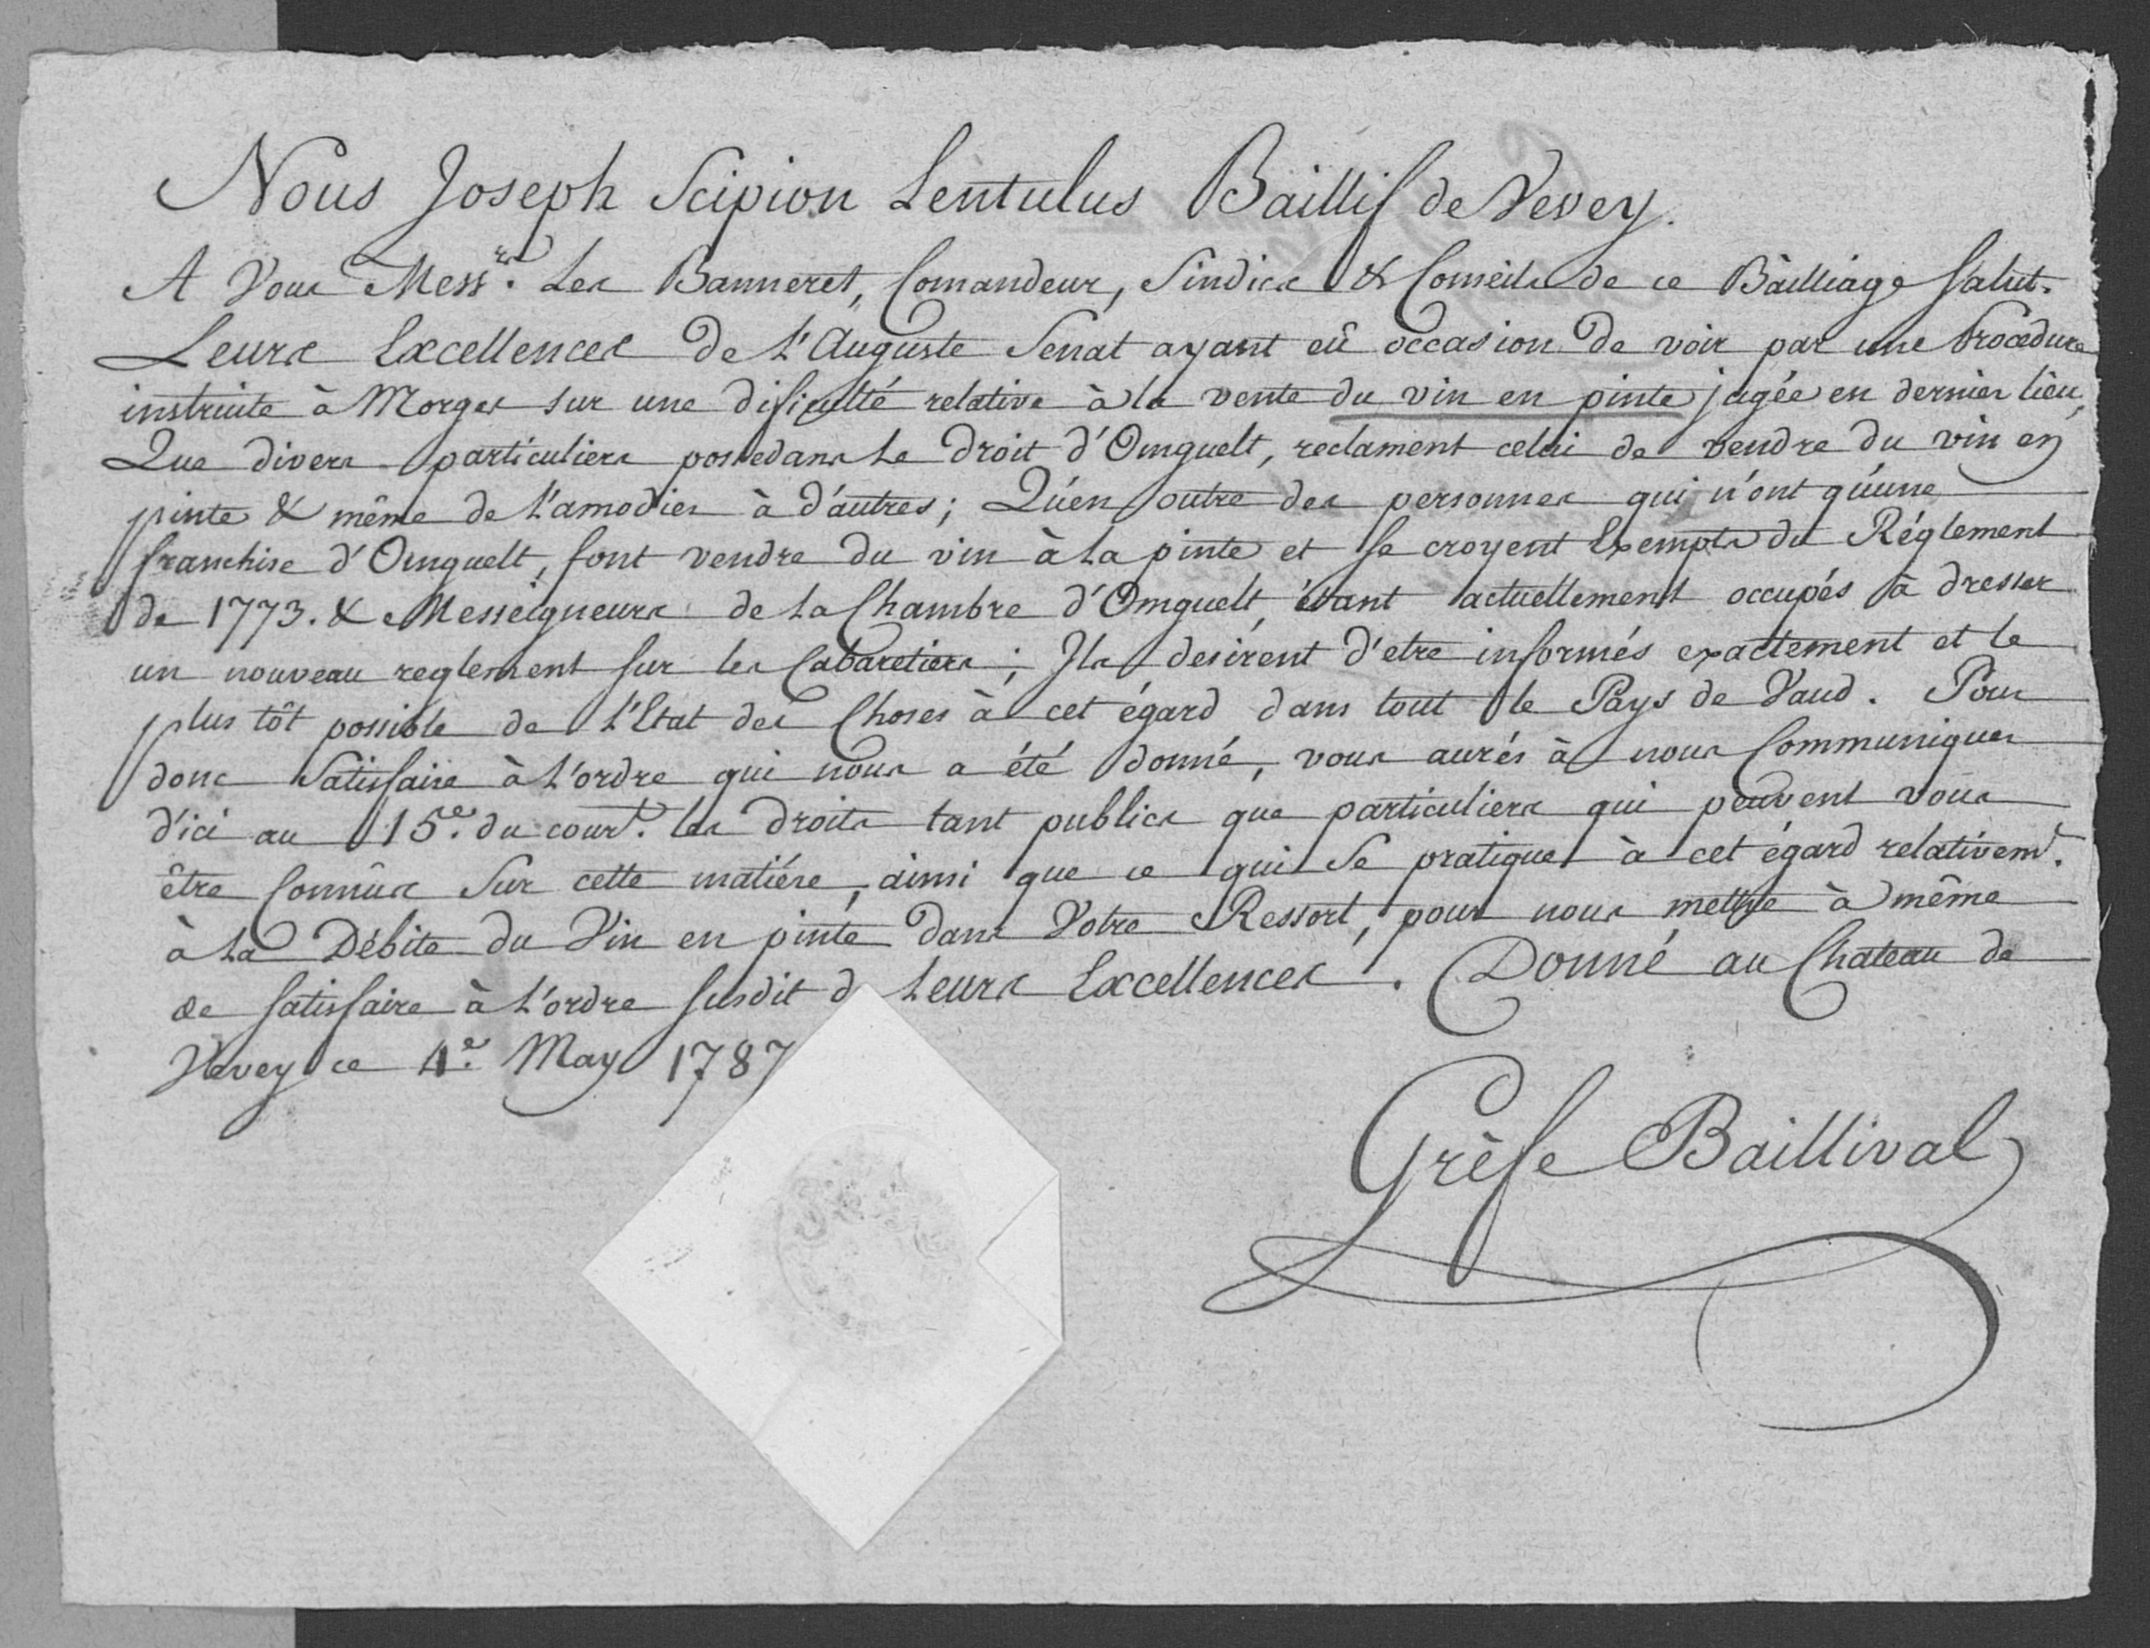 Nous Joseph Scipion Lentulus Baillif de Vevey.
A Vous Mess.rs Les Banneret, Comandeur, Sindics & Conseils de ce Bailliage Salut.
Leurs Excellences de L'Auguste Senat ayant eû occasion de voir par une Procedure
instruite à Morges sur une dificulté relative à la vente du vin en pinte jugée en dernier lieu,
Que divers particuliers possedans Le droit d'Omguelt, reclament celui de vendre du vin en
pinte & même de L'amodier à d'autres; Qu'en outre des personnes qui n'ont qu'une
franchise d'Omguelt, font vendre du vin à La pinte et se croyent Exempts du Réglement
de 1773. & Messeigneurs de La Chambre d'Omguelt, étant actuellement occupés à dresser
un nouveau reglement sur les Cabaretiers; Ils desirent d'etre informés exactement et le
plus tôt possible de L'Etat des Choses à cet égard dans tout le Pays de Vaud. Pour
donc Satisfaire à L'ordre qui nous a été donné, vous aurés à nous Communiquer
d'ici au 15.e du cour.t les droits tant publics que particuliers qui peuvent vous
être Connûs Sur cette matiére, ainsi que ce qui Se pratique à cet égard relativem.t
à La Débite du Vin en pinte dans Votre Ressort, pour nous mettre à même
de satisfaire à L'ordre susdit d Leurs Excellences. Donné au Chateau de
Vevey ce 4.e May 1787
Grèfe Baillival